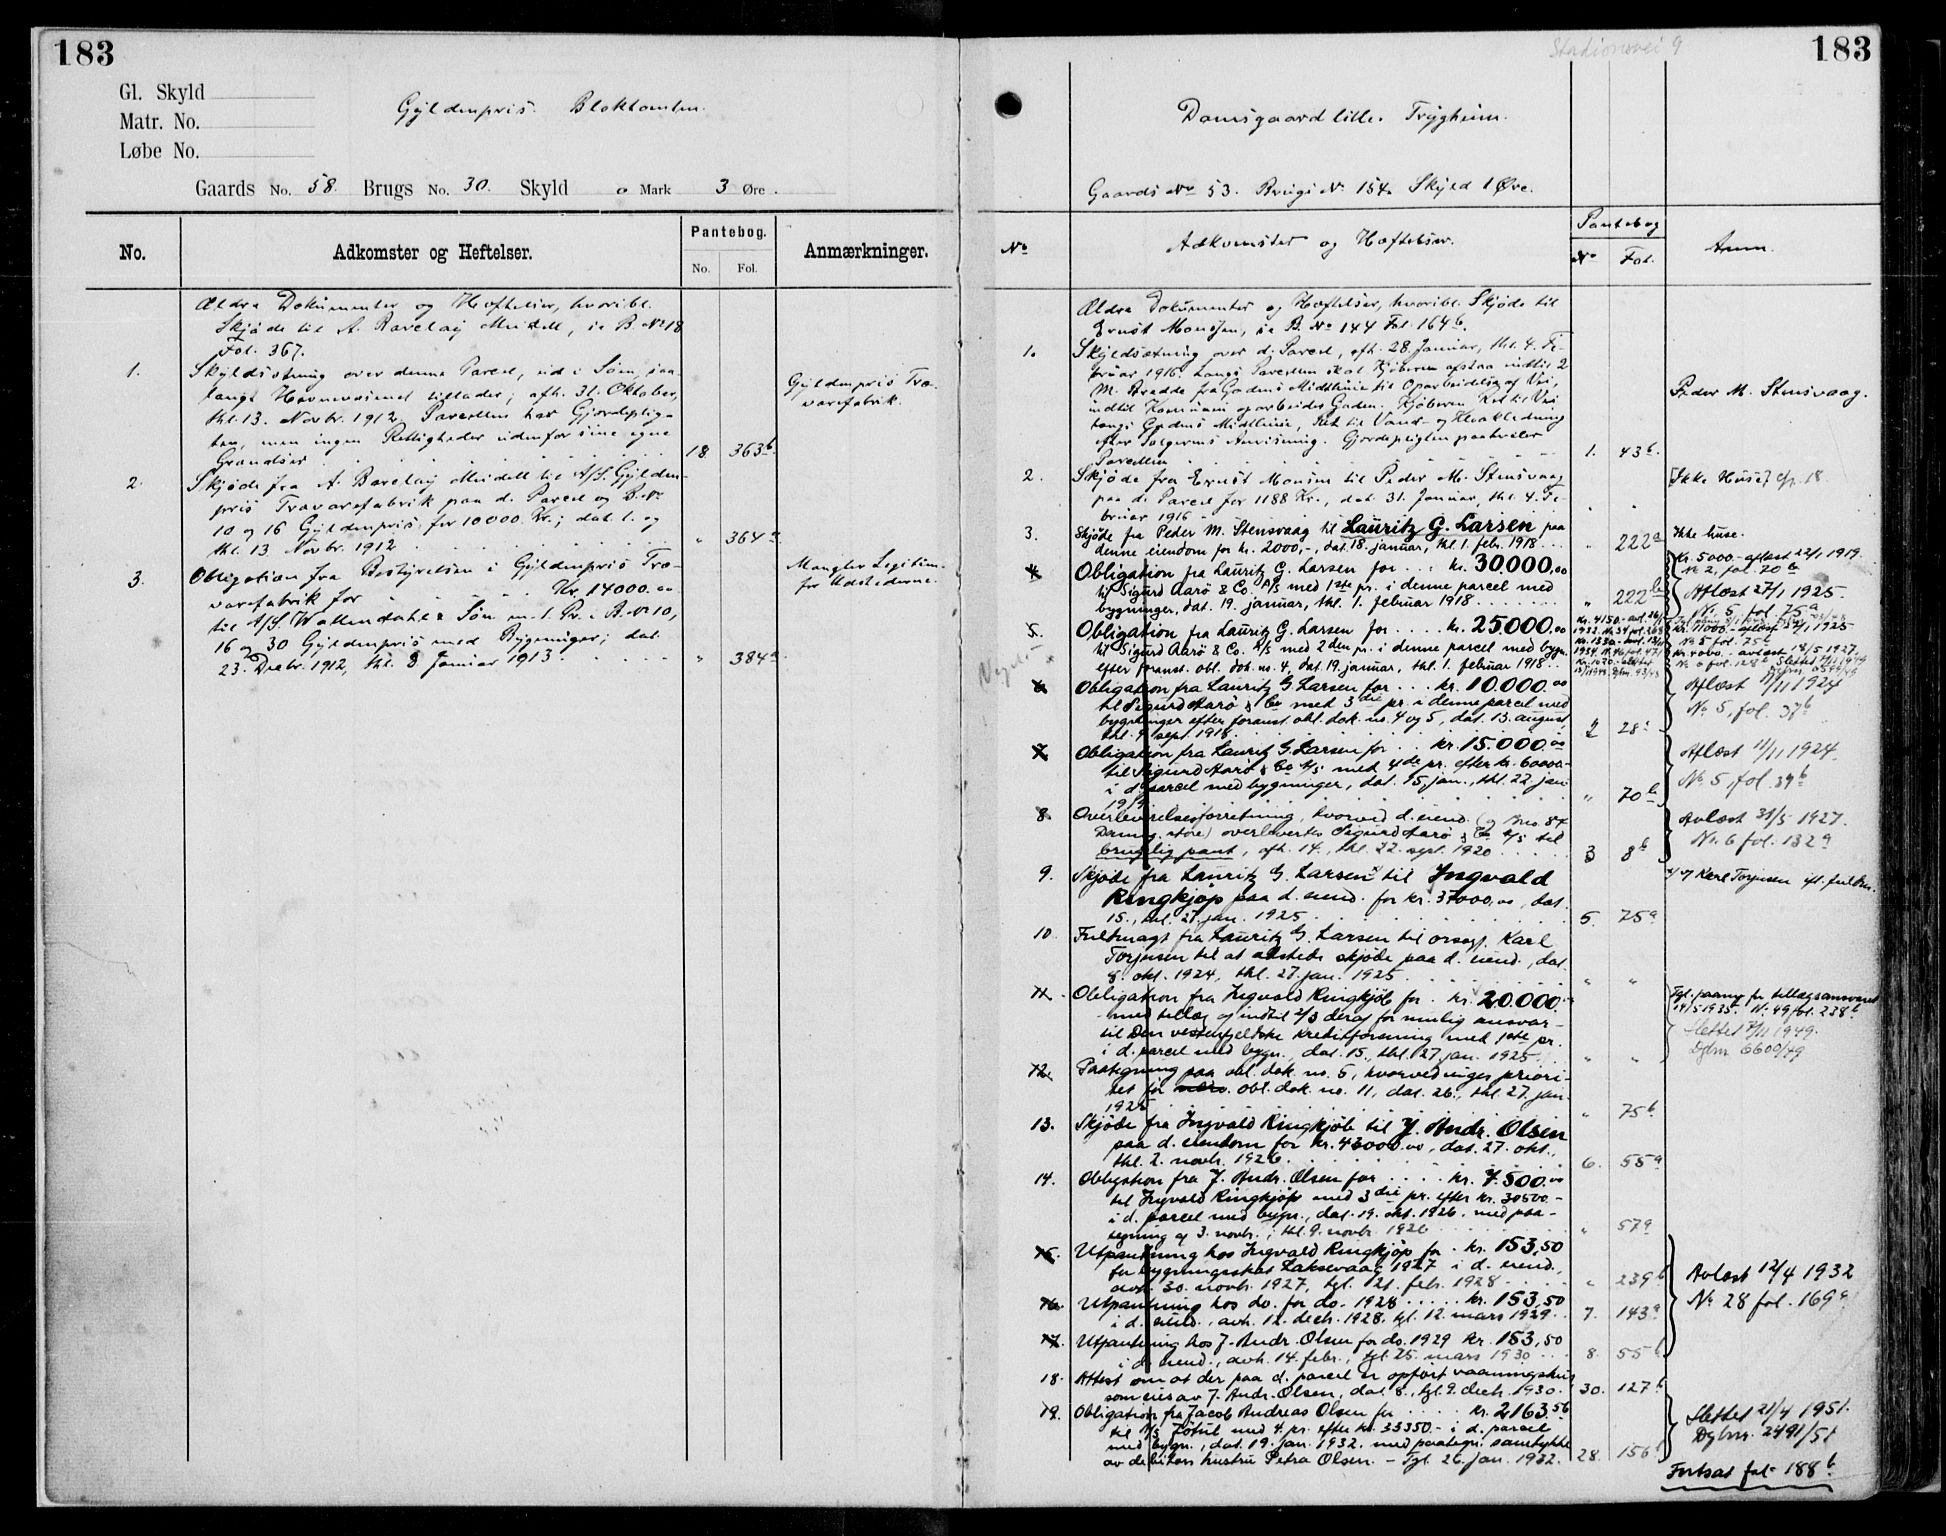 183
Gl. Skyld
Matr. No.
Løbe No.
Gyldenpris. Bloktomten.
Gaards No. 58. Brugs No. 30. Skyld o Mark 3 Øre.
No.
Adkomster og Heftelser.
Pantebog.
No. Fol.
Anmærkninger.
Ældre Dokumenter og Hæftelser, hvoribl.
Skjøde til A. Barclay Meidell, se B. No 18
Fol. 367.
1. Skyldsætning over denne Parcel, ud i Søen, saa
langt Havnevæsenet tillader; afh. 31. Oktober,
thl. 13. Novbr. 1912. Parcellen har Gjerdeplig-
ten, men ingen Rettigheder udenfor sine egne
Grændser 18. 363b.
Gyldenpris Træ-
varefabrik.
2. Skjøde fra A. Barclay Meidell til A/S. Gylden-
pris Trævarefabrik paa d. Parcel og B. No
10 og 16 Gyldenpris, for 10000 Kr.; dat. 1. og
thl. 13. Novbr. 1912 " 364a
3. Obligation fra Bestyrelsen i Gyldenpris Træ-
varefabrik for Kr. 14000.00
til A/S. Wallendahl & Søn m. 1. Pr. i B. No 10,
16 og 30 Gyldenpris med Bygninger; dat.
23. Decbr. 1912, thl. 3 Januar 1913 " 384a
Mangler Legitim.
for Udstederne.
Stadionsvei 9
183
Damsgaard lille. Trygheim.
Gaards No 53. Brugs No 154. Skyld 1 Øre.
No
Adkomster og Hæftelser.
Pantebog
No Fol.
Anm.
Ældre Dokumenter og Hæftelser, hvoribl. Skjøde til
Ernst Monssen, se B. No 144 Fol. 164b.
1. Skyldsætning over d. Parcel, afh. 28. Januar, thl. 4. Fe-
bruar 1916. Langs Parcellen skal Kjøberen afstaa indtil 2
M. Bredde fra Gadens Midtlinie til Oparbeidelse af Vei,
indtil Kommunen oparbeider Gaden. Kjøberen Ret til Vei
langs Gadens Midtlinie, Ret til Vand- og Kloakledning
efter Sælgerens Anvisning. Gjerdepligten paahviler
Parcellen 1. 43b.
Peder M. Stensvaag.
2. Skjøde fra Ernst Monsen til Peder M. Stensvaag
paa d. Parcel for 1188 Kr., dat. 31. Januar, thl. 4. Fe-
bruar 1916 " "
[Ikke Huse] cfr. 18.
3. Skjøde fra Peder M. Stensvaag til Lauritz G. Larsen paa
denne eiendom for kr. 2000,-, dat. 18. januar, thl. 1. febr. 1918 " 222a
Ikke huse.
4. Obligation fra Lauritz G. Larsen for kr. 30.000.00
til Sigurd Aarö & Co. A/S med 1ste pr. i denne parcel med
bygninger, dat. 19. januar, thl. 1. februar 1918 " 222b
Kr. 5000.- aflæst 22/1 1919.
No 2, fol. 70b
Aflæst 27/1 1925.
No. 5 fol. 75a
5. Obligation fra Lauritz G. Larsen for kr. 25.000.00
til Sigurd Aarö & Co. A/S med 2den pr. i denne parcel med bygn.
efter foranst. obl. dok. no. 4, dat. 19. januar, thl. 1. februar 1918
Kr. 11000 - aflæst 27/1 1925
No 5 fol. 75b
Kr. 4000.- avlæst 18/5 1927.
No 6 fol. 128b Slettet 7/11 1949
6. Obligation fra Lauritz G. Larsen for kr. 10.000.00
til Sigurd Aarö & Co med 3die pr. i denne parcel med
bygninger efter foranst. obl. dok. no. 4 og 5, dat. 13. august,
thl. 9. sept. 1918 2 28a
Aflæst 11/11 1924
No 5, fol. 37b
7. Obligation fra Lauritz G. Larsen for kr. 15.000.00
til Sigurd Aarö & Co A/S med 4de pr. efter kr. 60000.-
i d. parcel med bygninger, dat. 15. jan., thl. 22. jan.
1919 " 70b
Aflæst 11/11 1924
No 5, fol. 39b
8. Overleverelsesforretning, hvorved d. eiend. (og bno. 87
Damsg. store) overlevertes Sigurd Aarö & Co A/S til
brugelig pant, afh. 14., thl. 22. sept. 1920 3 8b
Avlæst 31/5 1927.
No. 6 fol. 132a
9. Skjøde fra Lauritz G. Larsen til Ingvald
Ringkjöp paa d. eiend. for kr. 37000.00, dat.
15., thl. 27. jan. 1925 5. 75a
v/ Karl Torjusen ifl. fuldm.
10 Fuldmagt fra Lauritz G. Larsen til orsagf. Karl
Torjusen til at utstede skjøde paa d. eiend., dat.
8. okt. 1924, thl. 27. jan. 1925 " "
11. Obligation fra Ingvald Ringkjöb for kr. 20.000.-
med tillæg af indtil 2/3 deraf for mulig ansvar -
til Den vestenfjeldske Kreditforening med 1ste pr.
i d. parcel med bygn., dat. 15., thl. 27. jan. 1925 " "
Tgl. paateg. for tillægsansvaret
14/5 1935. No 49 fol. 238b
Slettet 7/11 1949.
Dgbnr 6600/49
12. Paategning paa obl. dok. no. 5, hvorved viges priori-
tet for obl. dok. no. 11, dat. 26., thl. 27. jan.
1925 " 75b
13. Skjøde fra Ingvald Ringkjöb til J. Andr. Olsen
paa d. eiendom for kr. 43000.00, dat. 27. okt.,
thl. 2. novbr. 1926 6. 55a
14. Obligation fra J. Andr. Olsen for kr. 7.500.00
til Ingvald Ringkjöp med 3die pr. efter kr. 30500.-
i d. parcel med bygn., dat. 19. okt. 1926, med paa-
tegning af 3. novbr., thl. 9. novbr. 1926 " 57a
15. Utpantning hos Ingvald Ringkjöp for kr. 153,50
for bygningsskat Laksevaag 1927 i d. eiend.,
avh. 30. novbr. 1927, tgl. 21. febr. 1928 " 239b
16. Utpantning hos do. for do. 1928 kr. 153,50
i d. eiend., avh. 12. decb. 1928, tgl. 12. mars 1929 7. 143a
17. Utpantning hos J. Andr. Olsen for do. 1929 kr. 153,50
i d. eiend., avh. 14. febr., tgl. 25. mars 1930 8. 55b
Avlæst 12/4 1932
No 28 fol. 169a
18. Attest om at der paa d. parcel er opført vaaningshus
som eies av J. Andr. Olsen, dat. 8., tgl. 9. decb. 1930. 30. 127b
19. Obligation fra Jacob Andreas Olsen for kr. 2163.56
til A/S Jøtul med 4. pr. efter kr. 33350.- i d. parcel
med bygn., dat. 19. jan. 1932, med paategn. samtykke
av debitors hustru Petra Olsen. - Tgl. 26. jan. 1932. 28. 156b
Slettet 21/4 1951.
Dgbnr. 2491/51
Fortsat fol. 188b